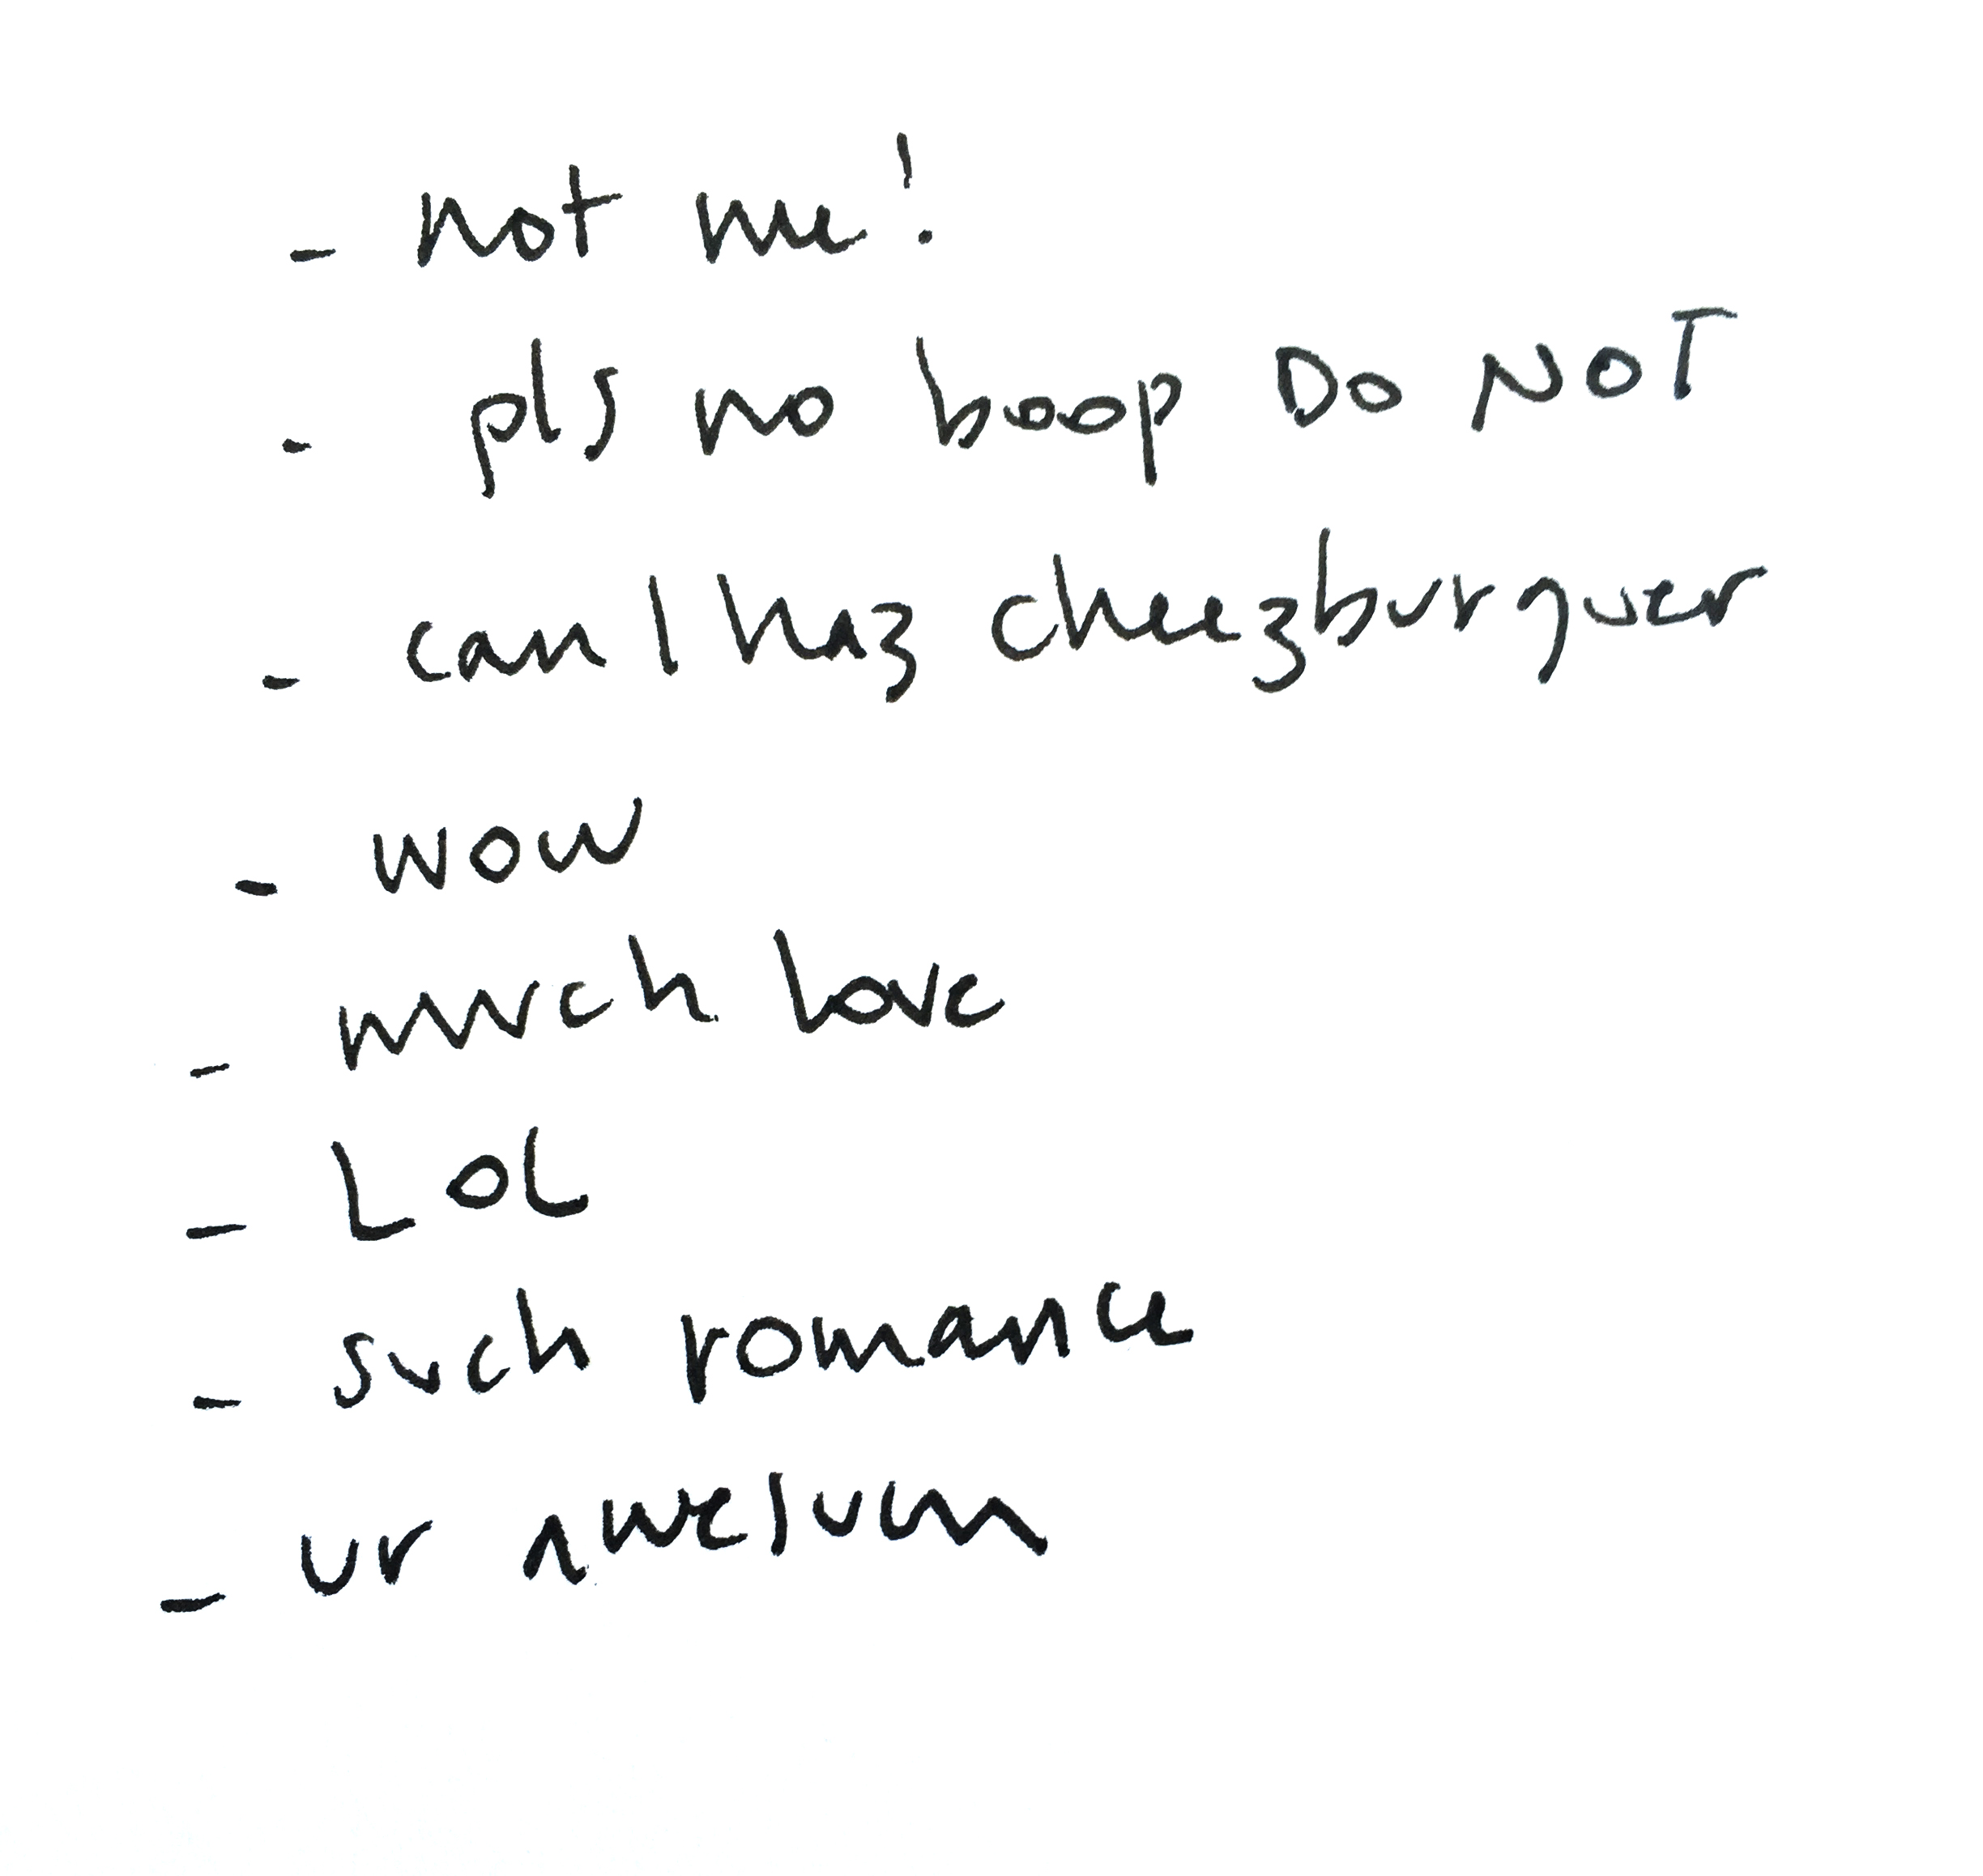 - not me!
- pls no boop DO NOT
- can I haz cheezburguer
- wow
- much love
- LOL
- such romance
- ur awesum